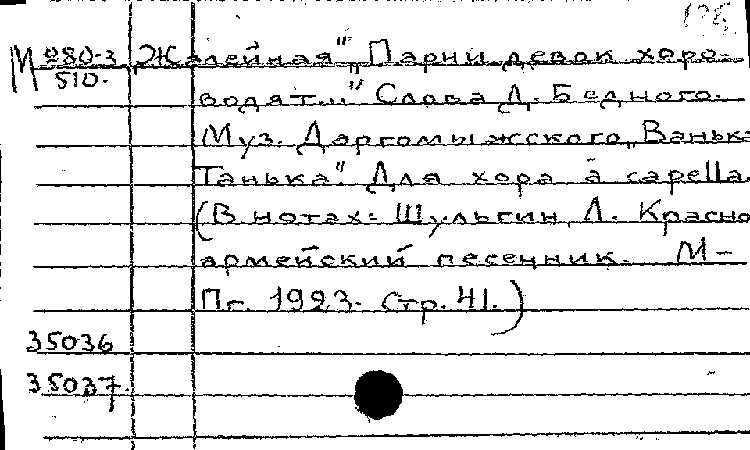 М 280-3 „Жалейная“ „Парни девок хоро-
510. водят..." Слова Д. Бедного.
Муз. Даргомыжского „Ванька
Танька". Для хора a capella.
(В нотах: Шульгин, Л. Красно
армейский песенник. М-
Пг. 1923. Стр. 41.)
35036
35037.